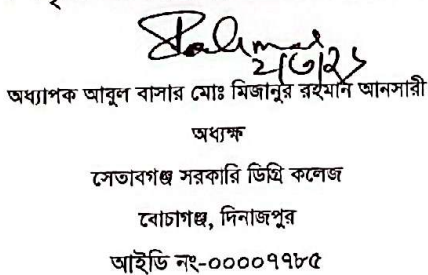 ২/৩/২১
অধ্যাপক আবুল বাসার মোঃ মিজানুর রহমান আনসারী
অধ্যক্ষ
সেতাবগঞ্জ সরকারি ডিগ্রি কলেজ
বোচাগঞ্জ, দিনাজপুর
আইডি নং-০০০০৭৭৮৫